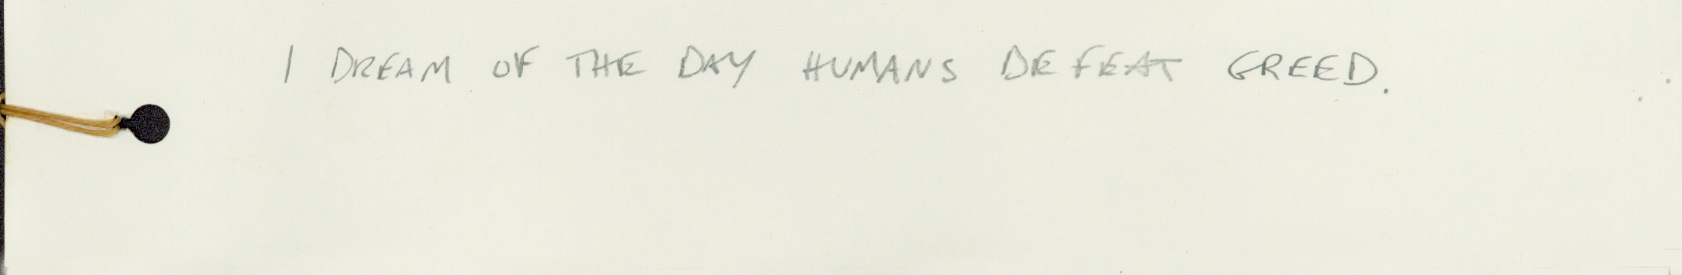 I DREAM OF THE DAY HUMANS DEFEAT GREED.